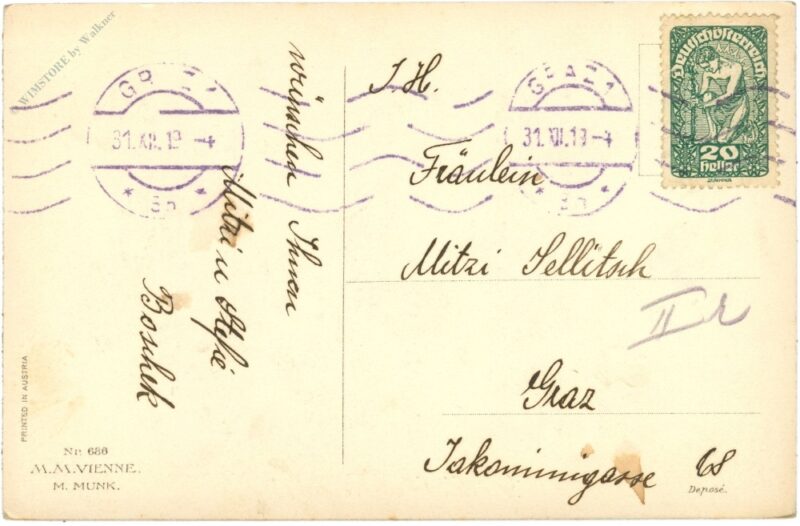 WIMSTORE by Walkner
wünschen Ihnen
Mitzi u Stefie
Boschek
PRINTED IN AUSTRIA
Nr. 686
M.M.VIENNE.
M. MUNK.
GRAZ 1
31.XII.19-4
* 3b *
GRAZ 1
31.XII.19-4
* 3b *
Deutschösterreich
20
Heller
I. H.
Fräulein
Mitzi Sellitsch
II
Graz
Jakominigasse 68
Deposé.